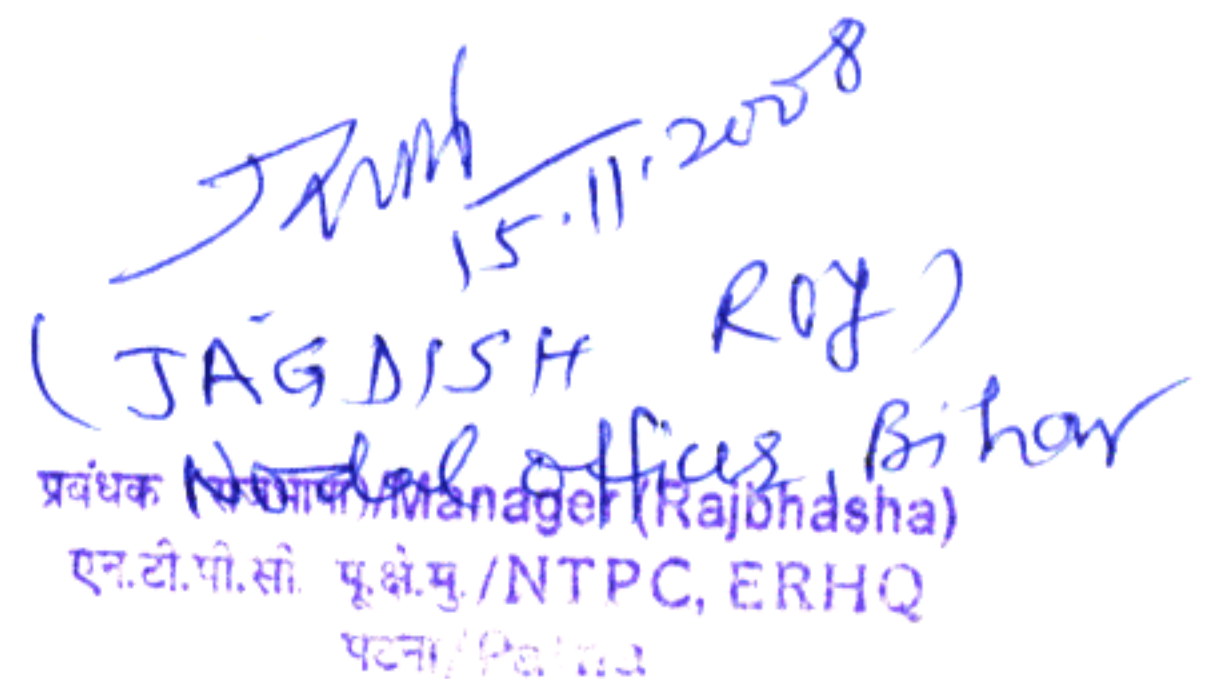 15.11.2008
(JAGDISH ROY)
Nodal officer, Bihar
प्रबंधक (राजभाषा)/Manager (Rajbhasha)
एन.टी.पी.सी. पू.क्षे.मु./NTPC, ERHQ
पटना/Patna